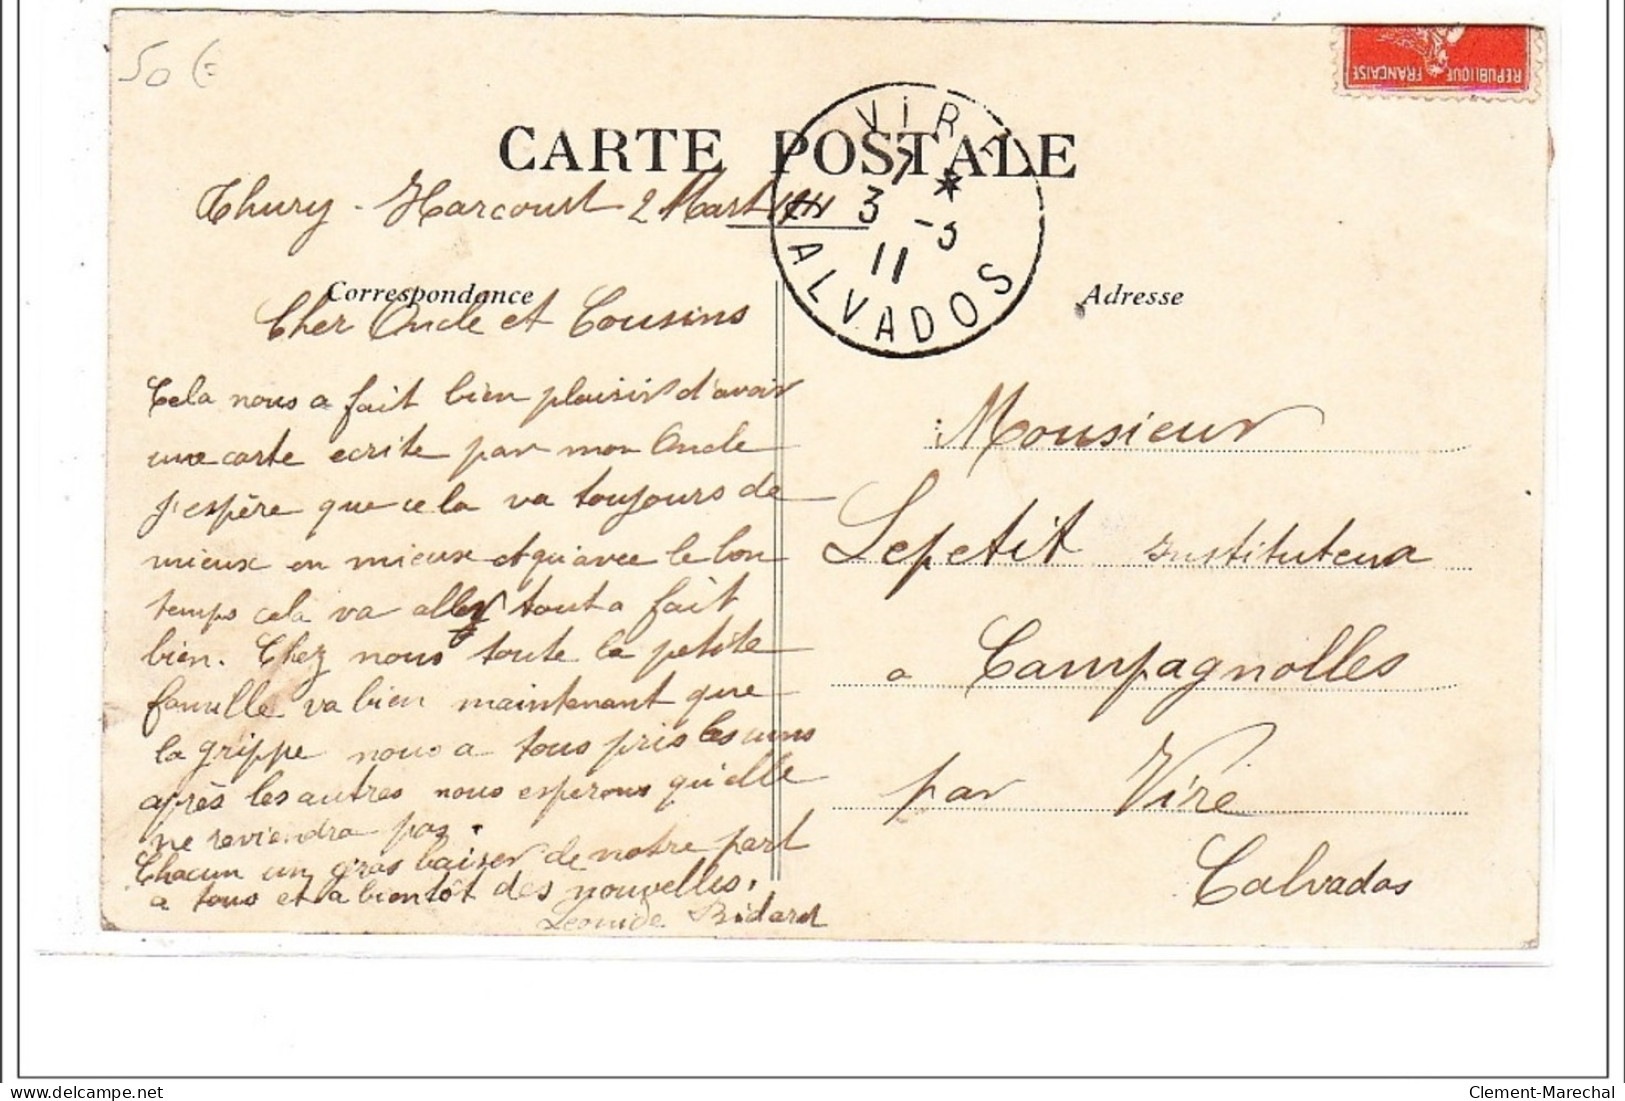 50 €
REPUBLIQUE FRANÇAISE
VIRE
CARTE POSTALE
Thury-Harcourt 2 Mars 1911
7 *
3 -3
11
CALVADOS
Correspondance
Adresse
Cher Oncle et Cousins
Cela nous a fait bien plaisir d'avoir
une carte ecrite par mon Oncle
j'espère que cela va toujours de
mieux en mieux et qu'avec le bon
temps cela va aller tout a fait
bien. Chez nous toute la petite
famille va bien maintenant que
la grippe nous a tous pris les uns
après les autres nous esperons qu'elle
ne reviendra pas.
Chacun un gros baiser de notre part
a tous et a bientôt des nouvelles.
Leonide Bidard
Monsieur
Lepetit instituteur
a Campagnolles
par Vire
Calvados
delcampe.net
Clement-Marechal